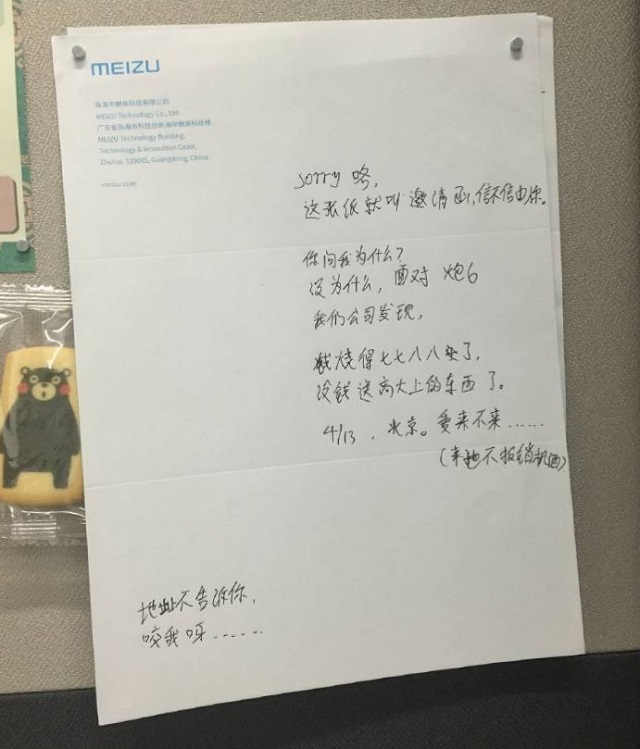 MEIZU
珠海市魅族科技有限公司
MEIZU Technology Co., Ltd.
广东省珠海市科技创新海岸魅族科技楼
MEIZU Technology Building,
Technology & Innovation Coast,
Zhuhai, 519085, Guangdong, China
meizu.com
sorry 咯，
这张纸就叫邀请函，信不信由你。
你问我为什么？
没为什么，面对炮6
我们公司发现，
钱烧得七七八八了，
没钱送高大上的东西了。
4/13，北京。爱来不来……
（本地不报销机酒）
地址不告诉你，
咬我呀……